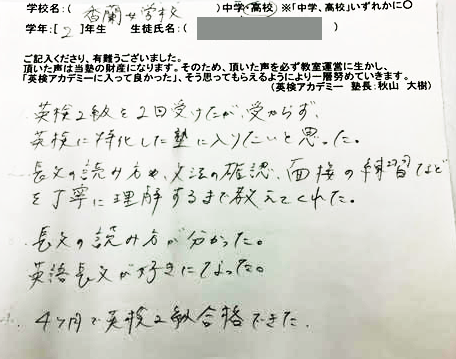 学校名：（ 香蘭女学校 ）中学・高校 ※「中学、高校」いずれかに○
学年：［ 2 ］年生 生徒氏名：（ ）
ご記入くださり、有難うございました。
頂いた声は当塾の財産になります。そのため、頂いた声を必ず教室運営に生かし、
「英検アカデミーに入って良かった」、そう思ってもらえるようにより一層努めていきます。
（英検アカデミー 塾長：秋山 大樹）
英検2級を2回受けたが、受からず、
英検に特化した塾に入りたいと思った。
長文の読み方や、文法の確認、面接の練習など
を丁寧に理解するまで教えてくれた。
長文の読み方が分かった。
英語長文が好きになった。
4ヶ月で英検2級合格できた.